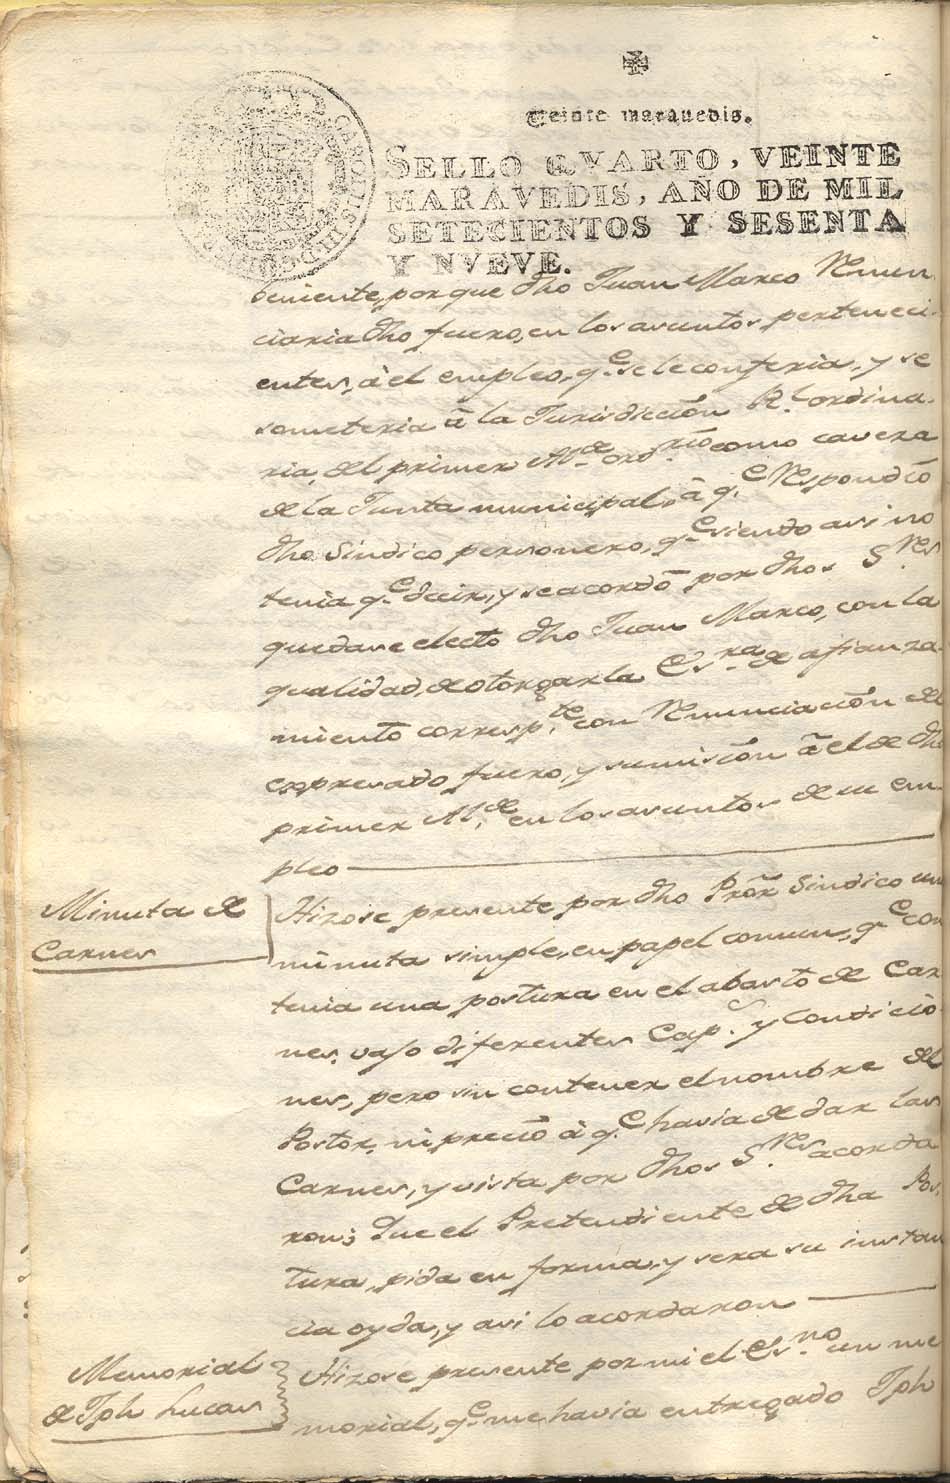 Veinte maravedis.
SELLO QVARTO, VEINTE
MARAVEDIS, AÑO DE MIL
SETECIENTOS Y SESENTA
Y NVEVE.
beniente, por que dho Juan Marco Renun
ciaria dho fuero, en los asuntos perteneci
entes, à el empleo, qᵉ. se le conferia, y se
someteria â la Jurisdiccion Rˡ. ordina
ria, del primer Alᵈᵉ. ordʳⁱᵒ como cavera
de la Junta municipal, â qᵉ. Respondiò
dho Sindico personero, qᵉ. siendo asi no
tenia qᵉ. decir, y se acordò por dhos Sʳᵉˢ.
quedase electo dho Juan Marco, con la
qualidad, de otorgar la Esʳᵃ. de afianza
miento correspᵗᵉ. con Renunciacion del
expresado fuero, y sumision â el de dho
primer Alᵈᵉ. en los asuntos de su em
pleo
Minuta de
Carnes
Hizose presente por dho Prõr Sindico una
minuta simple, en papel comun, qᵉ con
tenia una postura en el abasto de Car
nes, vajo diferentes Cap.ˢ y Condicio
nes, pero sin contener el nombre del
Postor, ni precio â qᵉ. havia de dar las
Carnes, y vista por dhos Sʳᵉˢ. acorda
ron; Que el Pretendiente de dha Pos
tura, pida en forma, y sera su instan
cia oyda, y asi lo acordaron
Memorial
de Jph Lucas
Hizose presente por mi el Esⁿᵒ. un me
morial, qᵉ. me havia entregado Jph